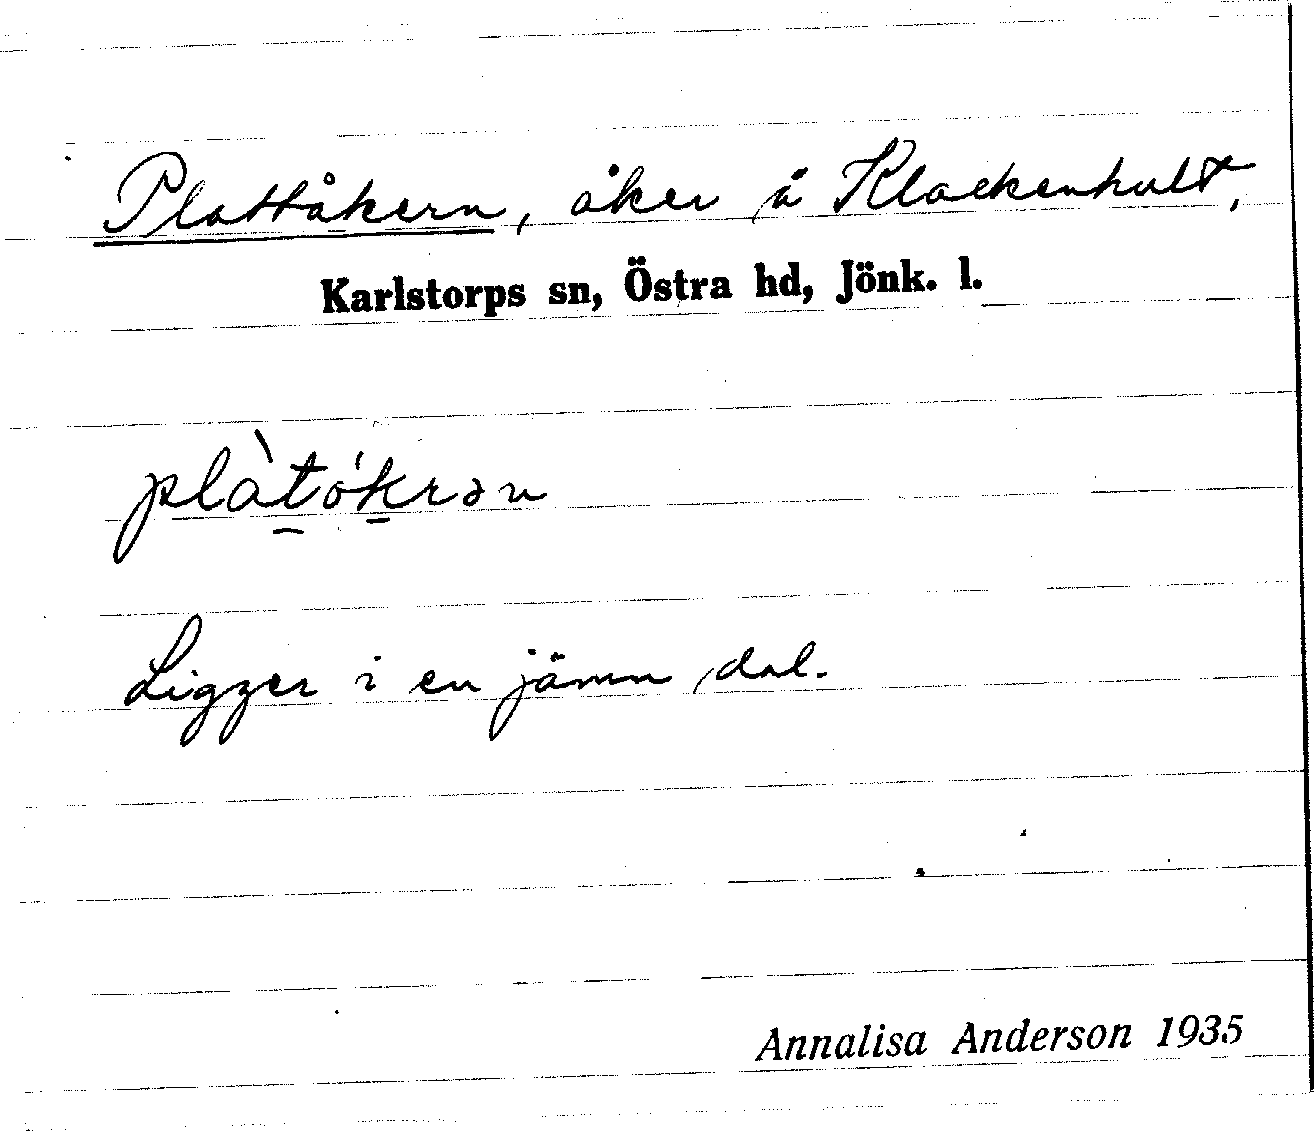 Plattåkern, åker å Klackenhult,
Karlstorps sn, Östra hd, Jönk. l.
plàto̍krən
Ligger i en jämn dal.
Annalisa Anderson 1935